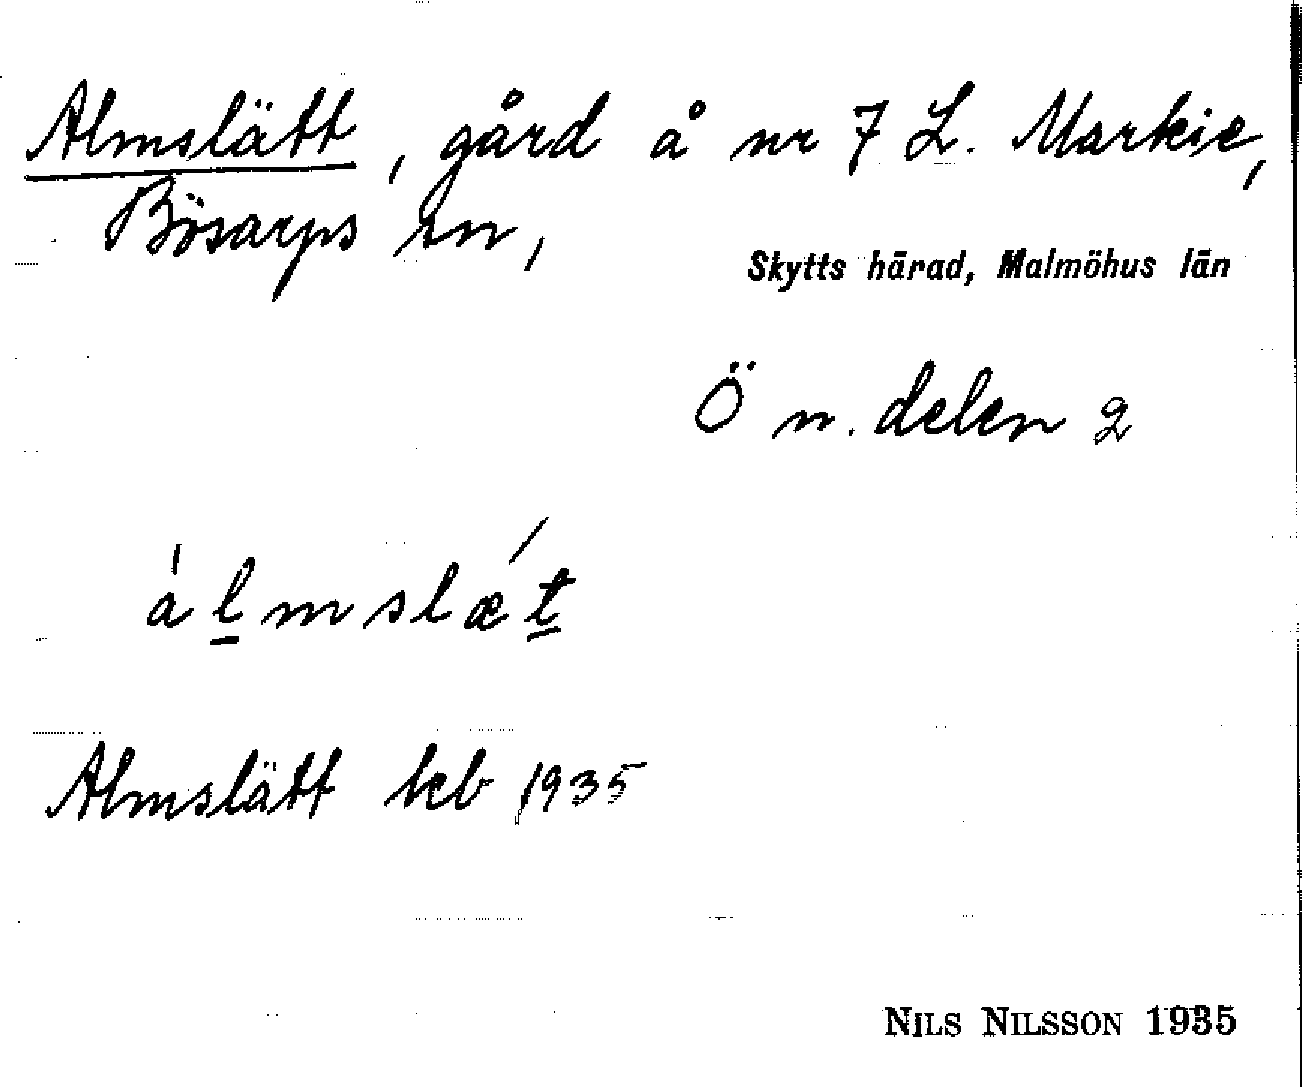 Almslätt, gård å nr 7 L. Markie,
Bösarps sn,
Skytts härad, Malmöhus län
Ö n. delen 2
a̍l̲mslǽt̲
Almslätt keb 1935
NILS NILSSON 1935